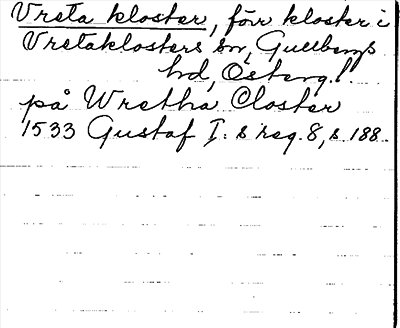 Vreta kloster, förr kloster i
Vretaklosters sn, Gullbergs
hd, Österg.l.
på Wretha Closter
1533 Gustaf I:s reg. 8, s. 188.